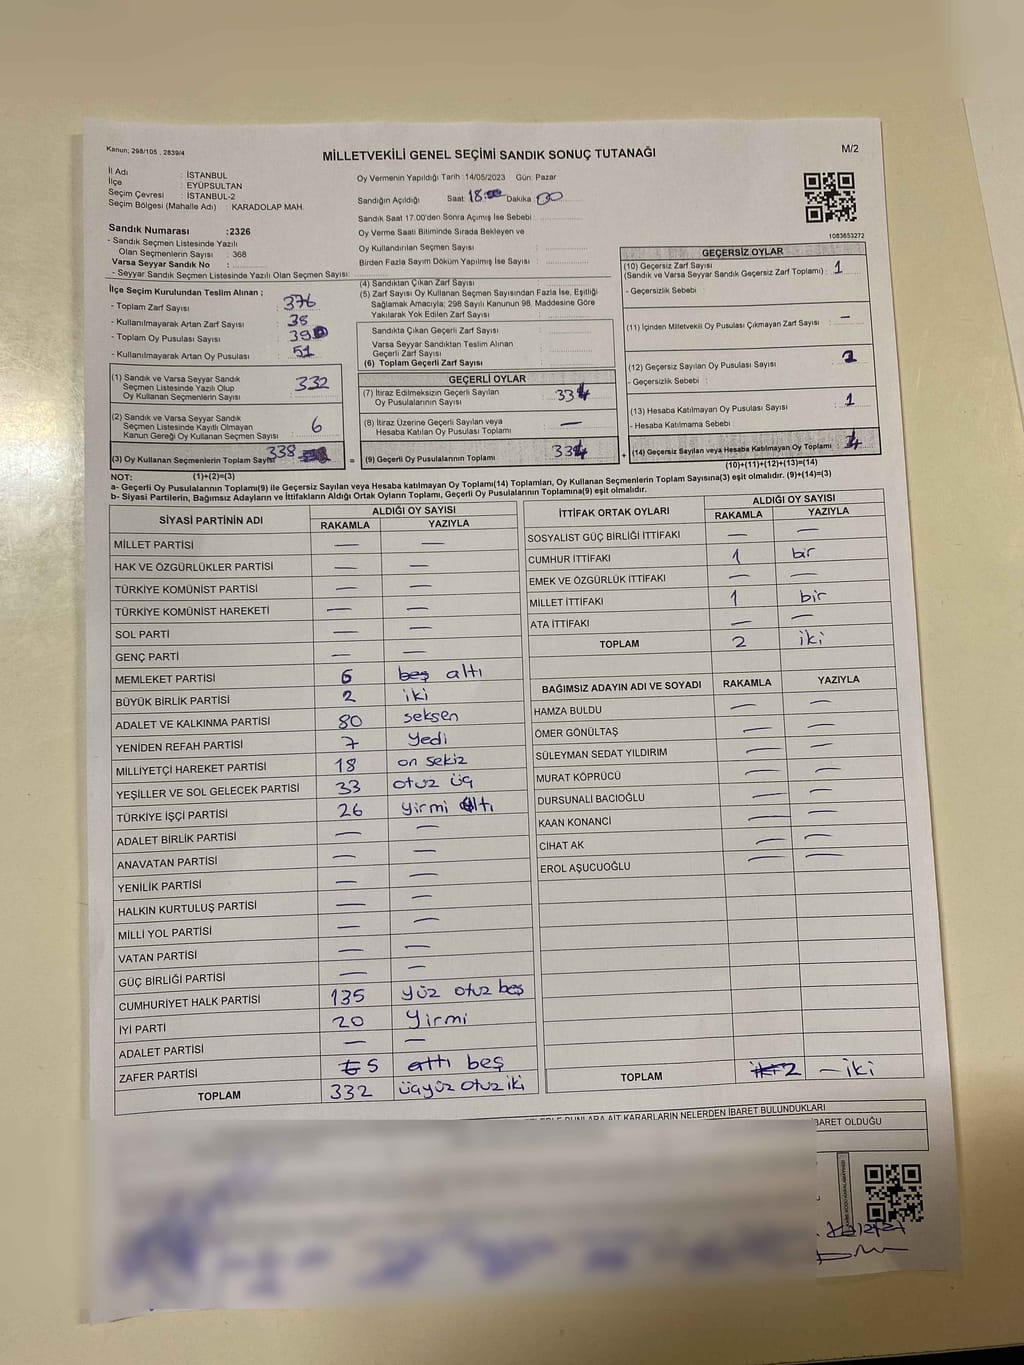 Kanun; 298/105 , 2839/4
MİLLETVEKİLİ GENEL SEÇİMİ SANDIK SONUÇ TUTANAĞI
M/2
İl Adı : İSTANBUL
İlçe : EYÜPSULTAN
Seçim Çevresi : İSTANBUL-2
Seçim Bölgesi (Mahalle Adı) : KARADOLAP MAH.
Oy Vermenin Yapıldığı Tarih :14/05/2023 Gün: Pazar
Sandığın Açıldığı Saat 18:00 Dakika 00
Sandık Saat 17.00'den Sonra Açımış İse Sebebi :
Oy Verme Saati Bitiminde Sırada Bekleyen ve
Oy Kullandırılan Seçmen Sayısı :
Birden Fazla Sayım Döküm Yapılmış İse Sayısı :
1083653272
Sandık Numarası :2326
- Sandık Seçmen Listesinde Yazılı
Olan Seçmenlerin Sayısı : 368
Varsa Seyyar Sandık No :
- Seyyar Sandık Seçmen Listesinde Yazılı Olan Seçmen Sayısı:
İlçe Seçim Kurulundan Teslim Alınan ;
- Toplam Zarf Sayısı : 376
- Kullanılmayarak Artan Zarf Sayısı : 38
- Toplam Oy Pusulası : 390
- Kullanılmayarak Artan Oy Pusulası : 51
(1) Sandık ve Varsa Seyyar Sandık
Seçmen Listesinde Yazılı Olup
Oy Kullanan Seçmenlerin Sayısı : 332
(2) Sandık ve Varsa Seyyar Sandık
Seçmen Listesinde Kayıtlı Olmayan
Kanun Gereği Oy Kullanan Seçmen Sayısı : 6
(3) Oy Kullanan Seçmenlerin Toplam Sayısı 338
=
(4) Sandıktan Çıkan Zarf Sayısı :
(5) Zarf Sayısı Oy Kullanan Seçmen Sayısından Fazla İse, Eşitliği
Sağlamak Amacıyla; 298 Sayılı Kanunun 98. Maddesine Göre
Yakılarak Yok Edilen Zarf Sayısı :
Sandıkta Çıkan Geçerli Zarf Sayısı :
Varsa Seyyar Sandıktan Teslim Alınan
Geçerli Zarf Sayısı :
(6) Toplam Geçerli Zarf Sayısı :
GEÇERLİ OYLAR
(7) İtiraz Edilmeksizin Geçerli Sayılan
Oy Pusulalarının Sayısı : 334
(8) İtiraz Üzerine Geçerli Sayılan veya
Hesaba Katılan Oy Pusulası Toplamı : —
(9) Geçerli Oy Pusulalarının Toplamı : 334
+
GEÇERSİZ OYLAR
(10) Geçersiz Zarf Sayısı
(Sandık ve Varsa Seyyar Sandık Geçersiz Zarf Toplamı) : 1
- Geçersizlik Sebebi :
(11) İçinden Milletvekili Oy Pusulası Çıkmayan Zarf Sayısı : —
(12) Geçersiz Sayılan Oy Pusulası Sayısı : 2
- Geçersizlik Sebebi :
(13) Hesaba Katılmayan Oy Pusulası Sayısı : 1
- Hesaba Katılmama Sebebi :
(14) Geçersiz Sayılan veya Hesaba Katılmayan Oy Toplamı : 4
NOT: (1)+(2)=(3)
(10)+(11)+(12)+(13)=(14)
a- Geçerli Oy Pusulalarının Toplamı(9) ile Geçersiz Sayılan veya Hesaba katılmayan Oy Toplamı(14) Toplamları, Oy Kullanan Seçmenlerin Toplam Sayısına(3) eşit olmalıdır. (9)+(14)=(3)
b- Siyasi Partilerin, Bağımsız Adayların ve İttifakların Aldığı Ortak Oyların Toplamı, Geçerli Oy Pusulalarının Toplamına(9) eşit olmalıdır.
SİYASİ PARTİNİN ADI ALDIĞI OY SAYISI
RAKAMLA YAZIYLA
MİLLET PARTİSİ — —
HAK VE ÖZGÜRLÜKLER PARTİSİ — —
TÜRKİYE KOMÜNİST PARTİSİ — —
TÜRKİYE KOMÜNİST HAREKETİ — —
SOL PARTİ — —
GENÇ PARTİ — —
MEMLEKET PARTİSİ 6 beş altı
BÜYÜK BİRLİK PARTİSİ 2 iki
ADALET VE KALKINMA PARTİSİ 80 seksen
YENİDEN REFAH PARTİSİ 7 yedi
MİLLİYETÇİ HAREKET PARTİSİ 18 on sekiz
YEŞİLLER VE SOL GELECEK PARTİSİ 33 otuz üç
TÜRKİYE İŞÇİ PARTİSİ 26 yirmi altı
ADALET BİRLİK PARTİSİ — —
ANAVATAN PARTİSİ — —
YENİLİK PARTİSİ — —
HALKIN KURTULUŞ PARTİSİ — —
MİLLİ YOL PARTİSİ — —
VATAN PARTİSİ — —
GÜÇ BİRLİĞİ PARTİSİ — —
CUMHURİYET HALK PARTİSİ 135 yüz otuz beş
İYİ PARTİ 20 Yirmi
ADALET PARTİSİ — —
ZAFER PARTİSİ 6 5 altı beş
TOPLAM 332 üçyüz otuz iki
İTTİFAK ORTAK OYLARI ALDIĞI OY SAYISI
RAKAMLA YAZIYLA
SOSYALİST GÜÇ BİRLİĞİ İTTİFAKI — —
CUMHUR İTTİFAKI 1 bir
EMEK VE ÖZGÜRLÜK İTTİFAKI — —
MİLLET İTTİFAKI 1 bir
ATA İTTİFAKI — —
TOPLAM 2 iki
BAĞIMSIZ ADAYIN ADI VE SOYADI RAKAMLA YAZIYLA
HAMZA BULDU — —
ÖMER GÖNÜLTAŞ — —
SÜLEYMAN SEDAT YILDIRIM — —
MURAT KÖPRÜCÜ — —
DURSUNALİ BACIOĞLU — —
KAAN KONANCİ — —
CİHAT AK — —
EROL AŞUCUOĞLU — —
TOPLAM iki 2 — iki
BUNLARA AİT KARARLARIN NELERDEN İBARET BULUNDUKLARI
BARET OLDUĞU